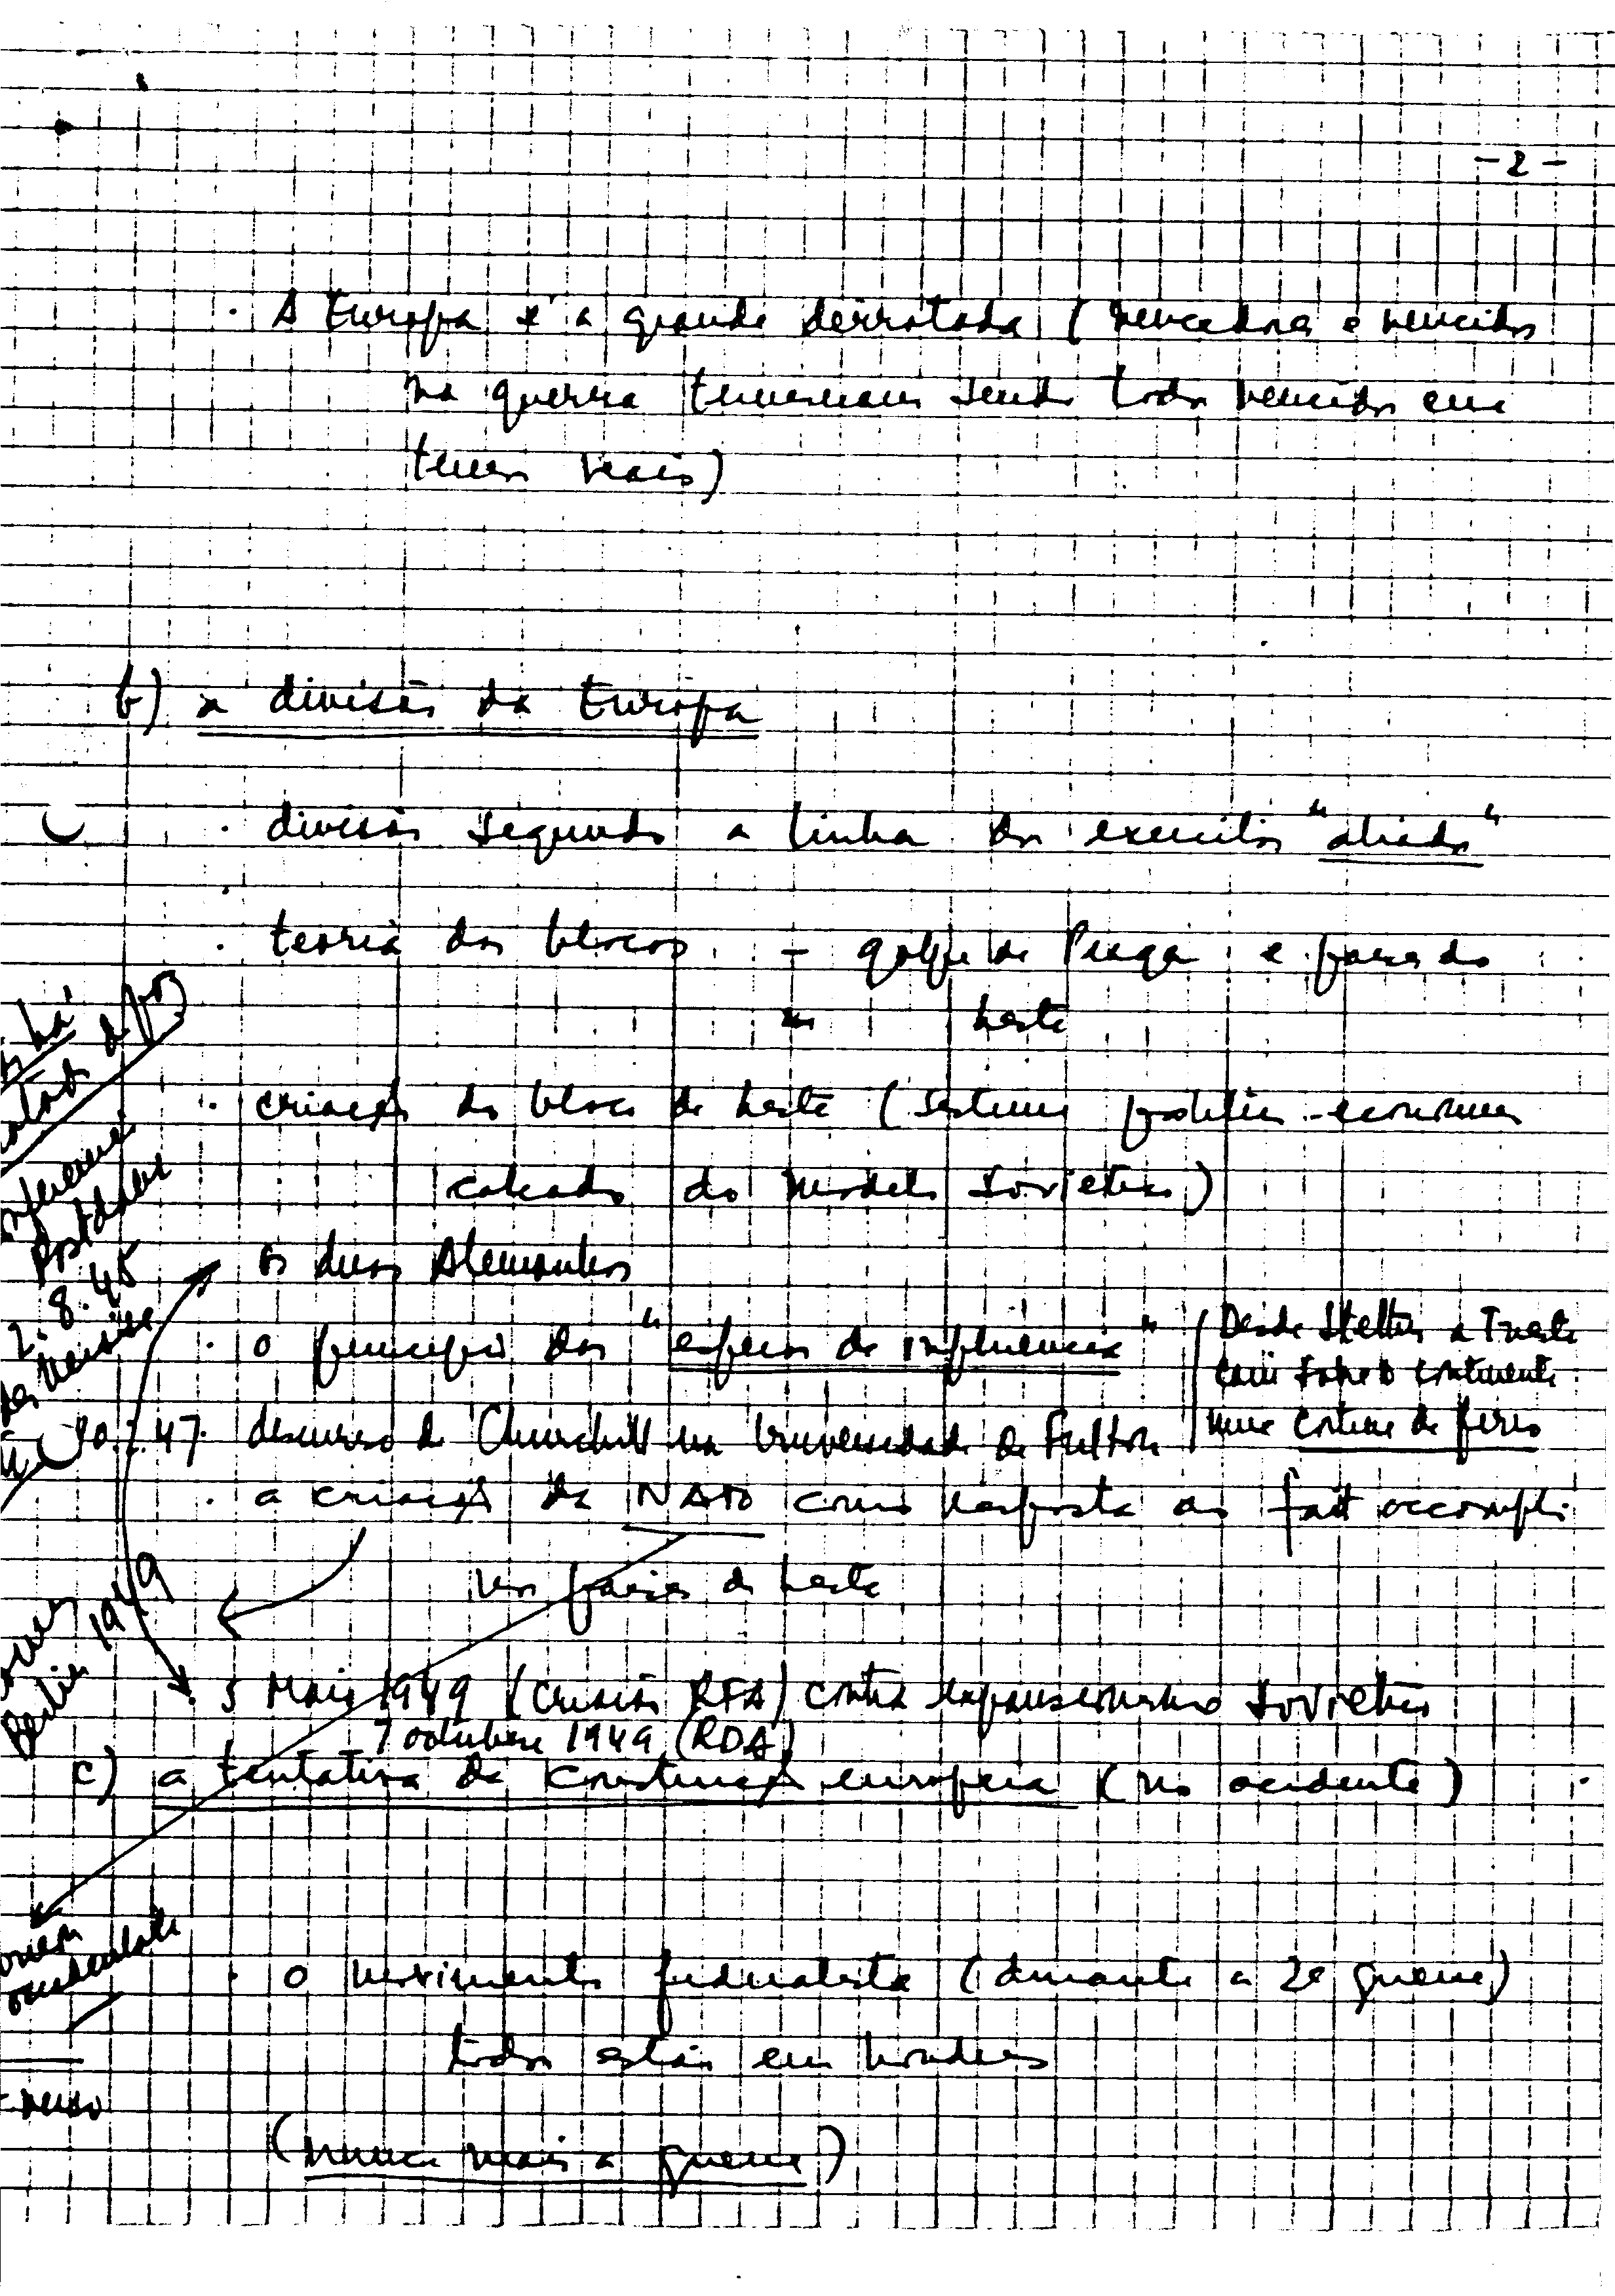 - 2 -
. A Europa é a grande derrotada (vencedores e vencidos
na guerra terminam sendo todos vencidos em
termos reais)
b) a divisão da Europa
. divisão segundo a linha dos exercitos "aliados"
. teoria dos blocos - golpe de Praga e países do
Leste
. criação do bloco de Leste (sistema politico-economico
calcado do modelo sovietico)
os duas Alemanhas
. o principio das "esferas de influencia"
Desde Stettin a Trieste
caiu sobre o continente
uma cortina de ferro
47. discurso de Churchill na Universidade de Fulton
. a criação da NATO como resposta ao fait accompli
nos países de Leste
5 Maio 1949 (criação RFA) contra expansionismo sovietico
7 outubro 1949 (RDA)
c) a tentativa da construção europeia (no ocidente)
. o movimento federalista (durante a 2ª guerra)
todos estão em Londres
(nunca mais a guerra)
há
Potsdam
2.8.45
Berlin 1949